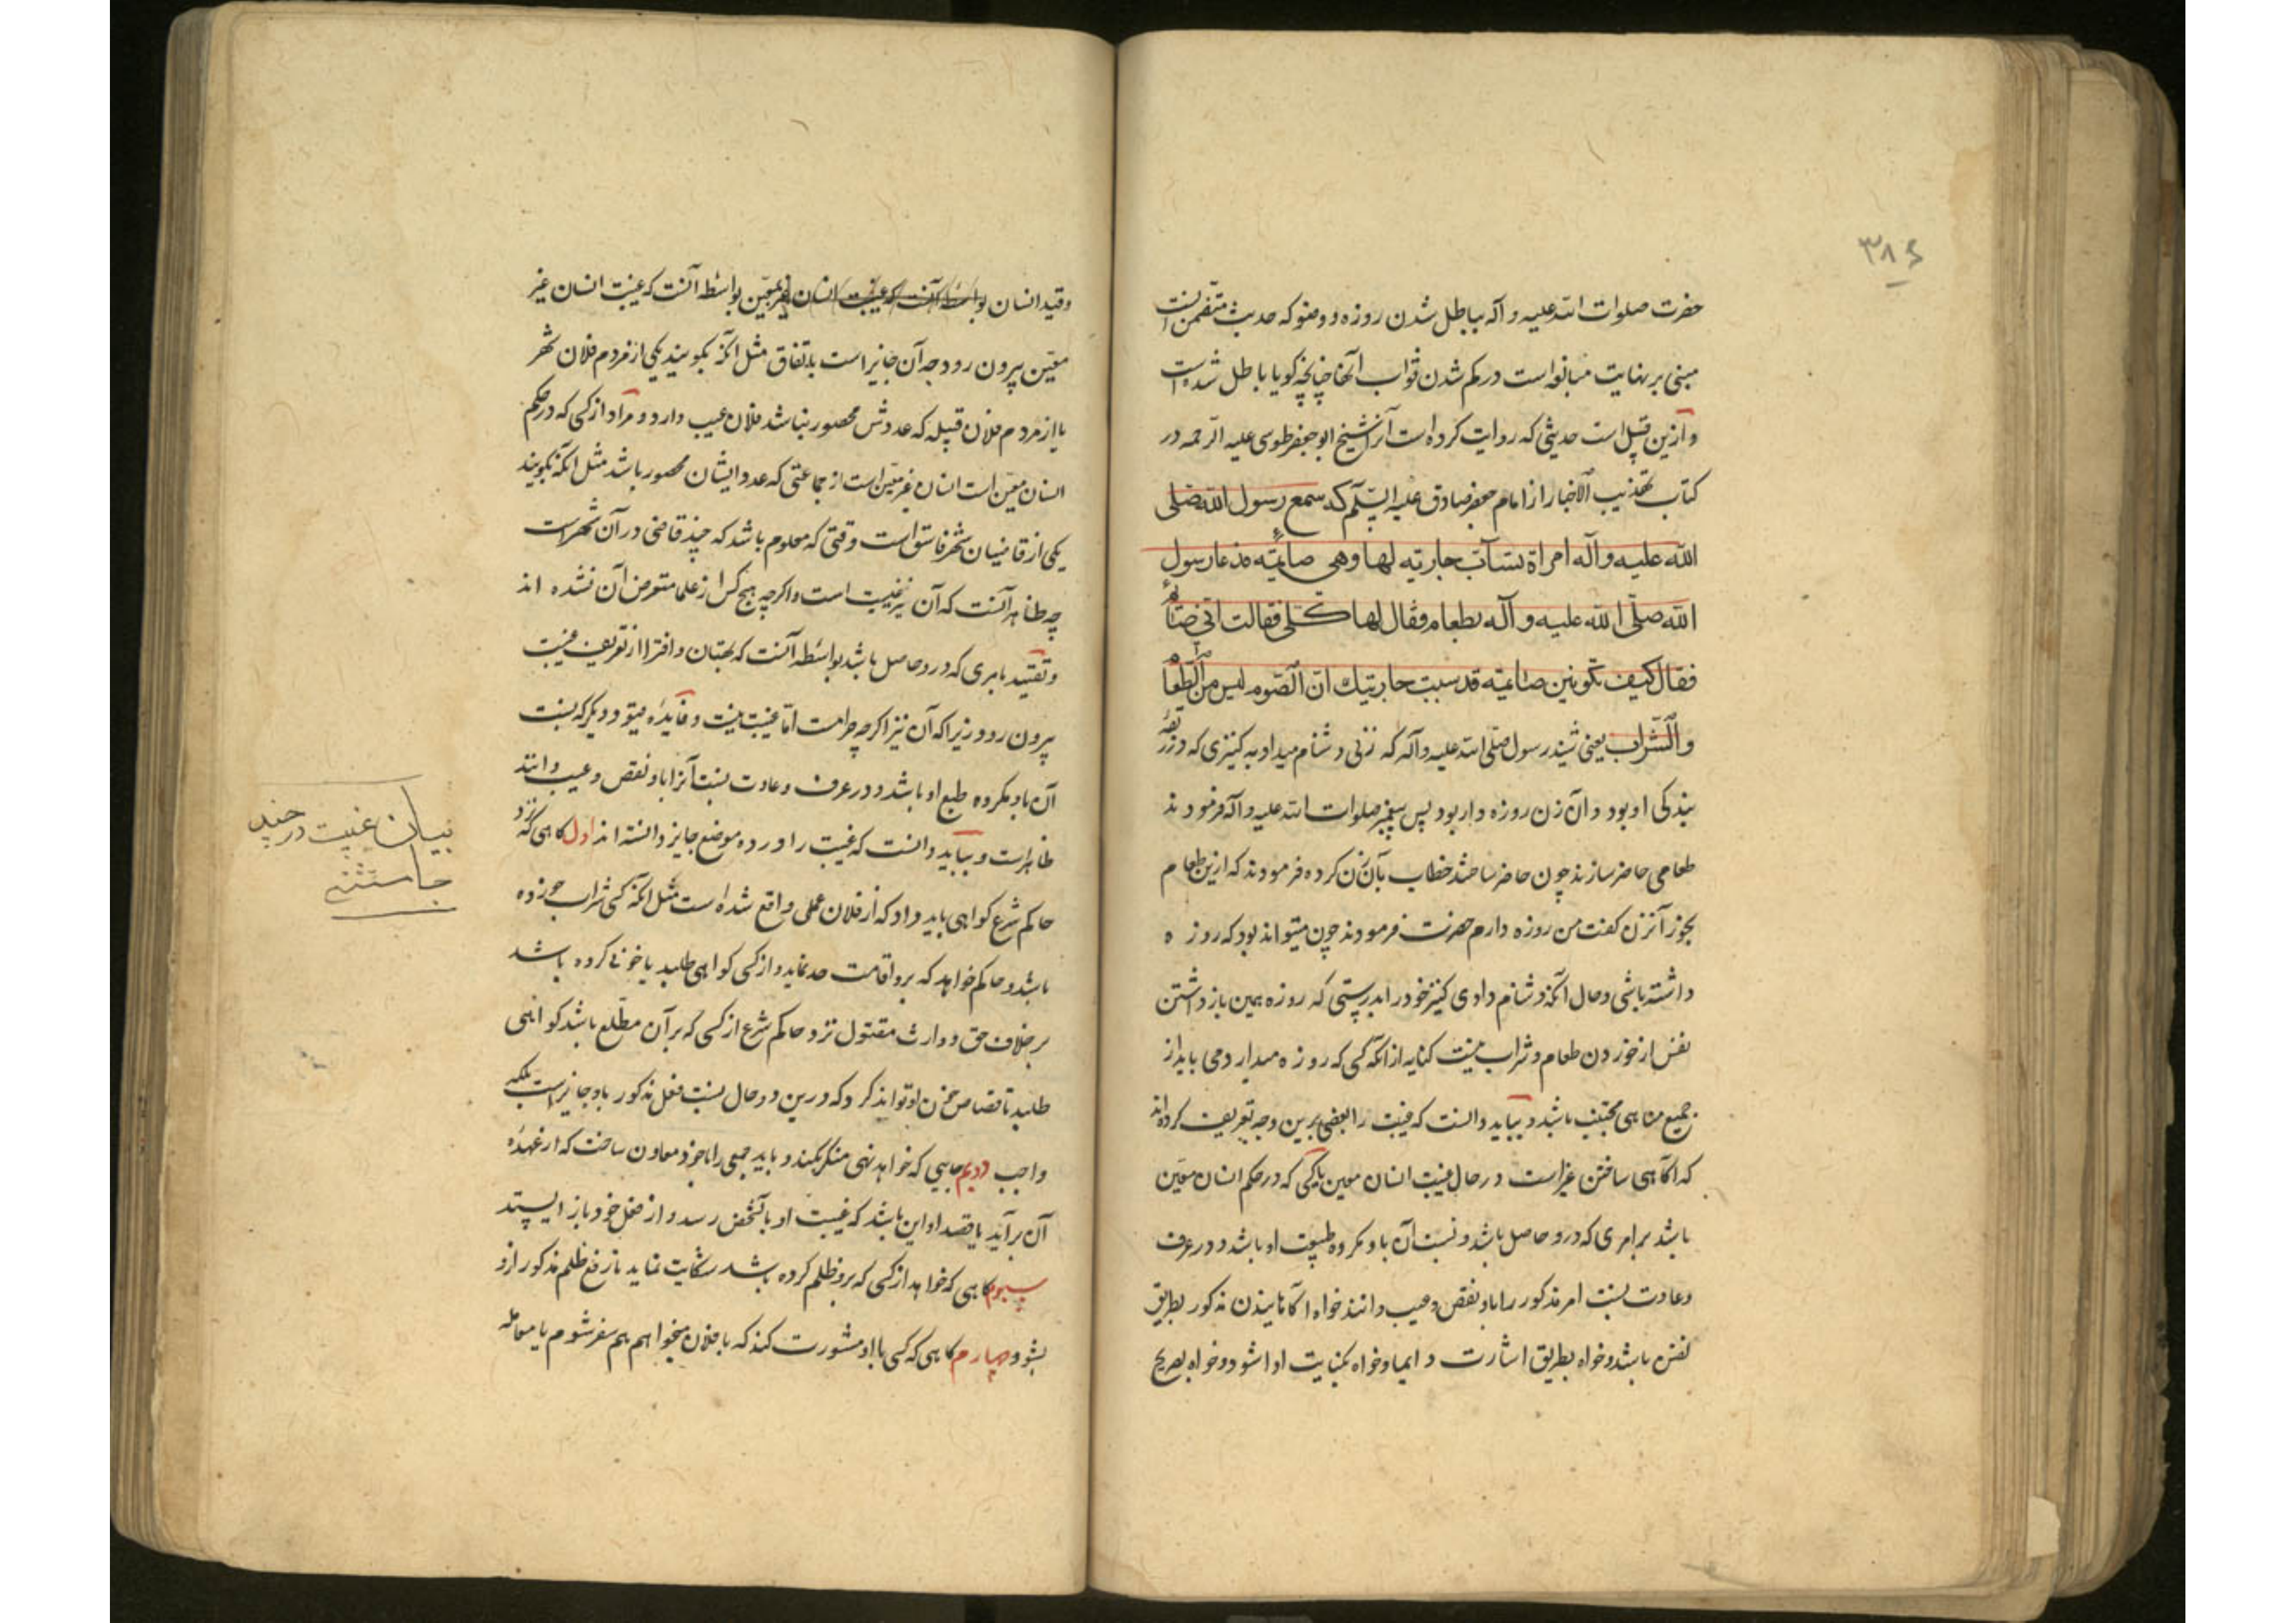 ۳۸۶
حضرت صلوات الله علیه و آله بباطل شدن روزه و وضو که حدیث متضمن آنست
مبنی بر نهایت مبالغه است در کم شدن ثواب آنها چنانچه کویا باطل شده است
و ازین قبیل است حدیثی که روایت کرده است آنرا شیخ ابو جعفر طوسی علیه الرحمه در
کتاب تهذیب الاخبار از امام جعفر صادق علیه السلم که سمع رسول الله صلی
الله علیه وآله امراة تسآب جاریته لها وهی صایمته فدعا رسول
الله صلّی الله علیه و آله بطعام فقال لها کلی فقالت انی صائمة
فقال کیف تکونین صائمیته قد سببت جاریتیك ان الصوم لیس من الطعام
والشراب یعنی شنید رسول صلی الله علیه و آله که زنی دشنام میداد به کنیزی که در ربقهٔ
بندکی او بود و آن زن روزه دار بود پس پیغمبر صلوات الله علیه و آله فرمودند
طعامی حاضر سازند چون حاضر ساختند خطاب بآن زن کرده فرمودند که ازین طعام
بخور آنزن کفت من روزه دارم حضرت فرمودند چون میتواند بود که روزه
داشته باشی و حال آنکه دشنام دادی کنیز خود را بدرستی که روزه همین باز داشتن
نفس از خوردن طعام و شراب نیست کنایه از آنکه کسی که روزه میدارد می باید از
جمیع مناهی مجتنب باشد و بباید دانست که غیبت را بعضی برین وجه تعریف کرده‌اند
که آکاهی ساختن غیر است در حال غیبت انسان معین یا کسی که در حکم انسان معین
باشد بر امری که درو حاصل باشد و نسبت آن باو مکروه طبیعت او باشد و در عرف
و عادت نسبت امر مذکور را باو نقص و عیب دانند خواه آکاهانیدن مذکور بطریق
لفظ باشد و خواه بطریق اشارت و ایما و خواه بکنایت ادا شود و خواه بصریح
و قید انسان بواسطه آنست که غیبت انسان غیر معین بواسطه آنست که غیبت انسان غیر
معین بیرون رود چه آن جایز است باتفاق مثل آنکه بکویند یکی از مردم فلان شهر
یا از مردم فلان قبیله که عددش محصور نباشد فلان عیب دارد و مراد از کسی که در حکم
انسان معین است انسان غیر معین است از جماعتی که عدد ایشان محصور باشد مثل آنکه بکویند
یکی از قاضیان شهر فاسق است وقتی که معلوم باشد که چند قاضی در آن شهر است
چه ظاهر آنست که آن نیز غیبت است و اکرچه هیچ کس از علما متعرض آن نشده اند
و تقیید بامری که درو حاصل باشد بواسطه آنست که بهتان و افترا از تعریف غیبت
بیرون رود زیرا که آن نیز اکرچه حرامست اما غیبت نیست و فایدهٔ قیود دیکر که نسبت
آن باو مکروه طبع او باشد و در عرف و عادت نسبت آنرا باو نقص و عیب دانند
ظاهر است و بباید دانست که غیبت را در ده موضع جایز دانسته اند اول کاهی که نزد
حاکم شرع کواهی باید داد که از فلان عملی واقع شده است مثل آنکه کسی شراب خورده
باشد و حاکم خواهد که برو اقامت حد نماید و از کسی کواهی طلبد یا خونی کرده باشد
بر خلاف حق و وارث مقتول نزد حاکم شرع از کسی که بر آن مطلع باشد کواهی
طلبد تا قصاص خون او تواند کرد که درین دو حال نسبت فعل مذکور باو جایز است بلکه
واجب دویم جایی که خواهد نهی منکر بکند و باید جمعی را با خود معاون ساخت که از عهدهٔ
آن برآید یا قصد او این باشد که غیبت او بآنشخص رسد و از فعل خود باز ایستد
سیوم کاهی که خواهد از کسی که برو ظلم کرده باشد شکایت نماید تا رفع ظلم مذکور ازو
بشود چهارم کاهی که کسی با او مشورت کند که با فلان میخواهم هم سفر شوم یا معامله
بیان غیبت در چند
جا مستثنی